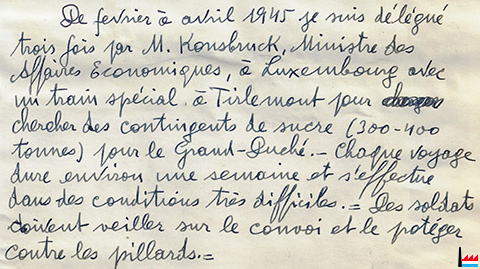 De fevrier à avril 1945 je suis délégué
trois fois par M. Konsbruck, Ministre des
Affaires Economiques, à Luxembourg avec
un train spécial à Tirlemont pour
chercher des contingents de sucre (300-400
tonnes) pour le Grand-Duché.- Chaque voyage
dure environ une semaine et s'effectue
dans des conditions très difficiles.= Des soldats
doivent veiller sur le convoi et le potéger
contre les pillards.=